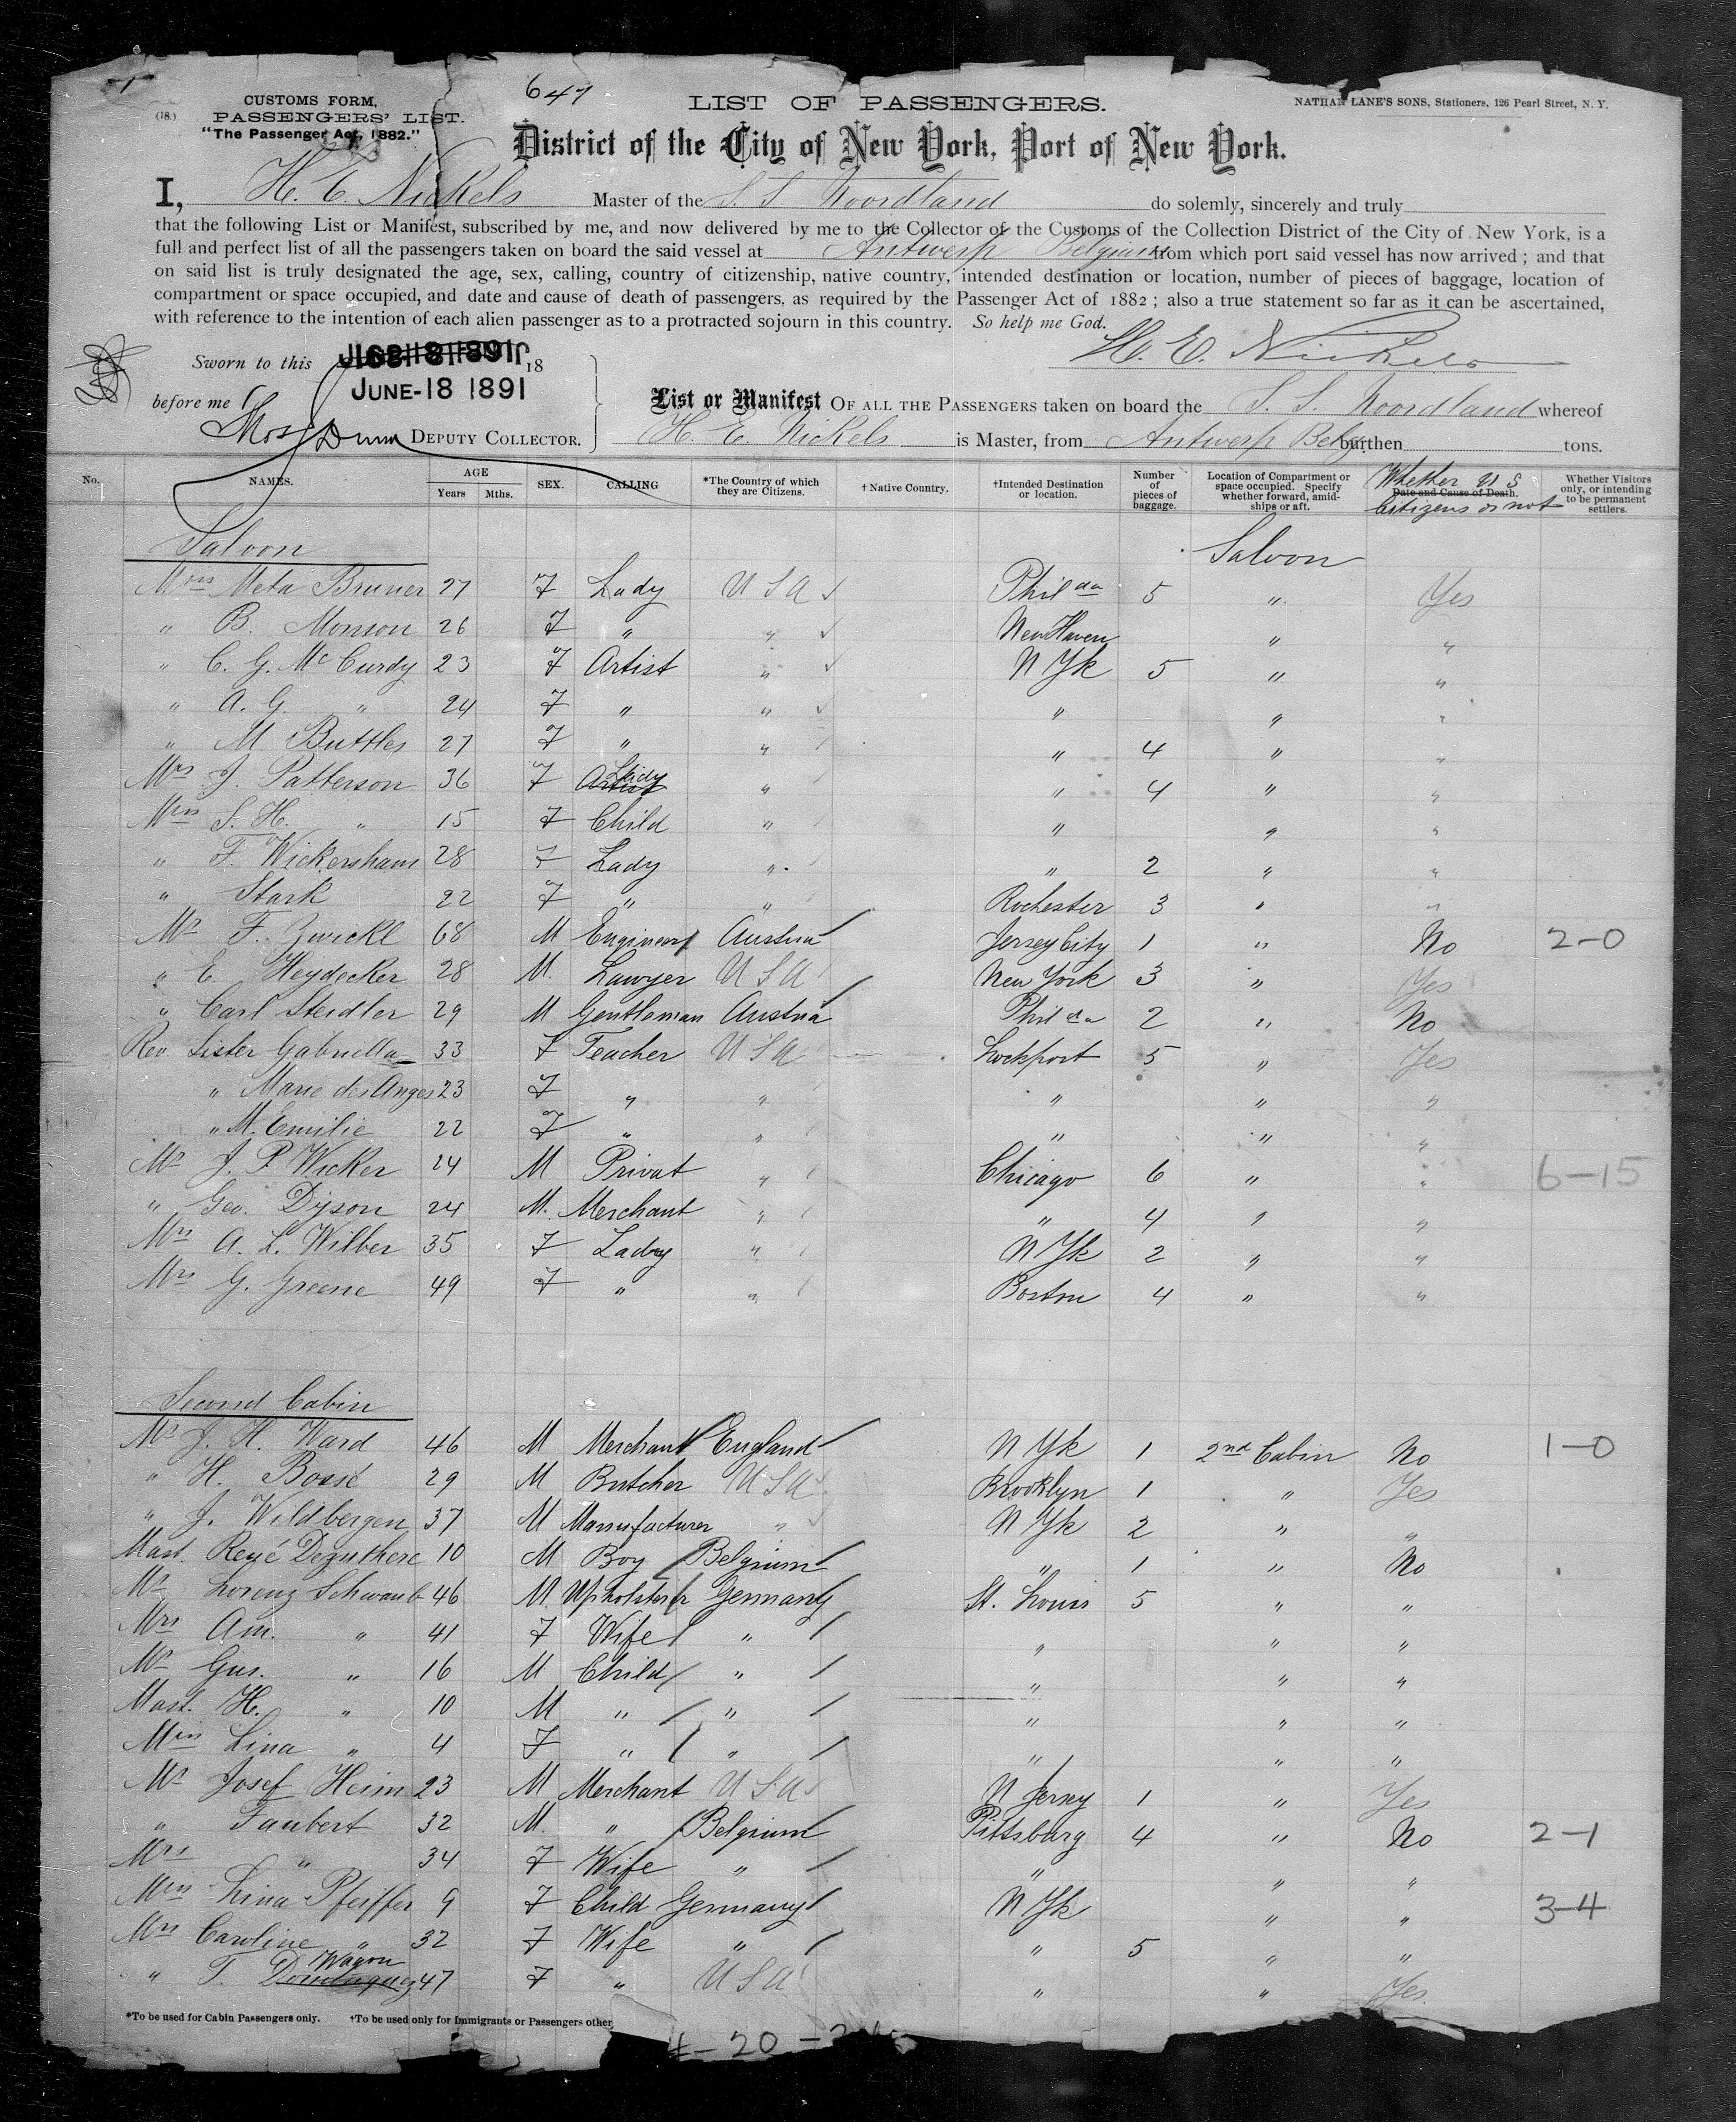 647
(18.)
CUSTOMS FORM,
PASSENGERS' LIST.
"The Passenger Act, 1882."
LIST OF PASSENGERS.
NATHAN LANE'S SONS, Stationers, 126 Pearl Street, N. Y.
District of the City of New York, Port of New York.
I, H. E. Nickels Master of the S. S Noordland do solemly, sincerely and truly
that the following List or Manifest, subscribed by me, and now delivered by me to the Collector of the Customs of the Collection District of the City of New York, is a
full and perfect list of all the passengers taken on board the said vessel at Antwerp Belgium from which port said vessel has now arrived ; and that
on said list is truly designated the age, sex, calling, country of citizenship, native country, intended destination or location, number of pieces of baggage, location of
compartment or space occupied, and date and cause of death of passengers, as required by the Passenger Act of 1882 ; also a true statement so far as it can be ascertained,
with reference to the intention of each alien passenger as to a protracted sojourn in this country. So help me God.
H. E. Nickels
Sworn to this 18
JUNE-18 1891
before me
DEPUTY COLLECTOR.
List or Manifest OF ALL THE PASSENGERS taken on board the S. S. Noordland whereof
H. E. Nickels is Master, from Antwerp Belg. burthen tons.
No. NAMES. AGE Years Mths. SEX. CALLING *The Country of which they are Citizens. †Native Country. †Intended Destination or location. Number of pieces of baggage. Location of Compartment or space occupied. Specify whether forward, amid-ships or aft. Date and Cause of Death. Whether U S Citizens or not Whether Visitors only, or intending to be permanent settlers.
Saloon Saloon
Miss Meta Bruner 27 F Lady U S A Philda 5 " Yes
" B. Monson 26 F " " New Haven " "
" C. G. McCurdy 23 F Artist " N Yk 5 " "
" A. G. " 24 F " " " " "
" M Buttles 27 F " " " 4 " "
Mrs J. Patterson 36 F Artist Lady " " 4 " "
Miss S. H. " 15 F Child " " " "
" F. Wickersham 28 F Lady " " 2 " "
" Stark 22 F " " Rochester 3 " "
Mr F. Zwickl 68 M Engineer Austria Jersey City 1 " No 2-0
" E Heydecker 28 M. Lawyer U S A New York 3 " Yes
" Carl Steidler 29 M Gentleman Austria Philda 2 " No
Rev. Sister Gabriella 33 F Teacher U S A Lockport 5 " Yes
" Marie des Anges 23 F " " " " "
" M. Emilie 22 F " " " " "
Mr J. P. Wicker 24 M Privat " Chicago 6 " " 6-15
" Geo. Dyson 24 M. Merchant " " 4 " "
Mrs A. L. Wilber 35 F Lady " N Yk 2 " "
Mrs G. Greene 49 F " " Boston 4 " "
Second Cabin
Mr J. H. Ward 46 M Merchant England N Yk 1 2nd Cabin No 1-0
" H. Bossé 29 M Butcher U S A Brooklyn 1 " Yes
" J. Wildbergen 37 M Manufacturer " N Yk 2 " "
Mast. René 10 M Boy Belgium " 1 " No
Mr Lorenz Schwaub 46 M Upholsterer Germany St. Louis 5 " "
Mrs Am. " 41 F Wife " " " "
Mr Gus. " 16 M Child " " " "
Mast. H. " 10 M " " " " "
Miss Lina " 4 F " " " " "
Mr Josef Heim 23 M Merchant U S A N Jersey 1 " Yes
" Faubert 32 M. " Belgium Pittsburg 4 " No 2-1
Mrs " 34 F Wife " " " "
Miss Lina Pfeiffer 9 F Child Germany N Yk " " 3-4
Mrs Caroline " 32 F Wife " " 5 " "
" T. Wagon 47 F " U S A " " Yes.
*To be used for Cabin Passengers only. †To be used only for Immigrants or Passengers other